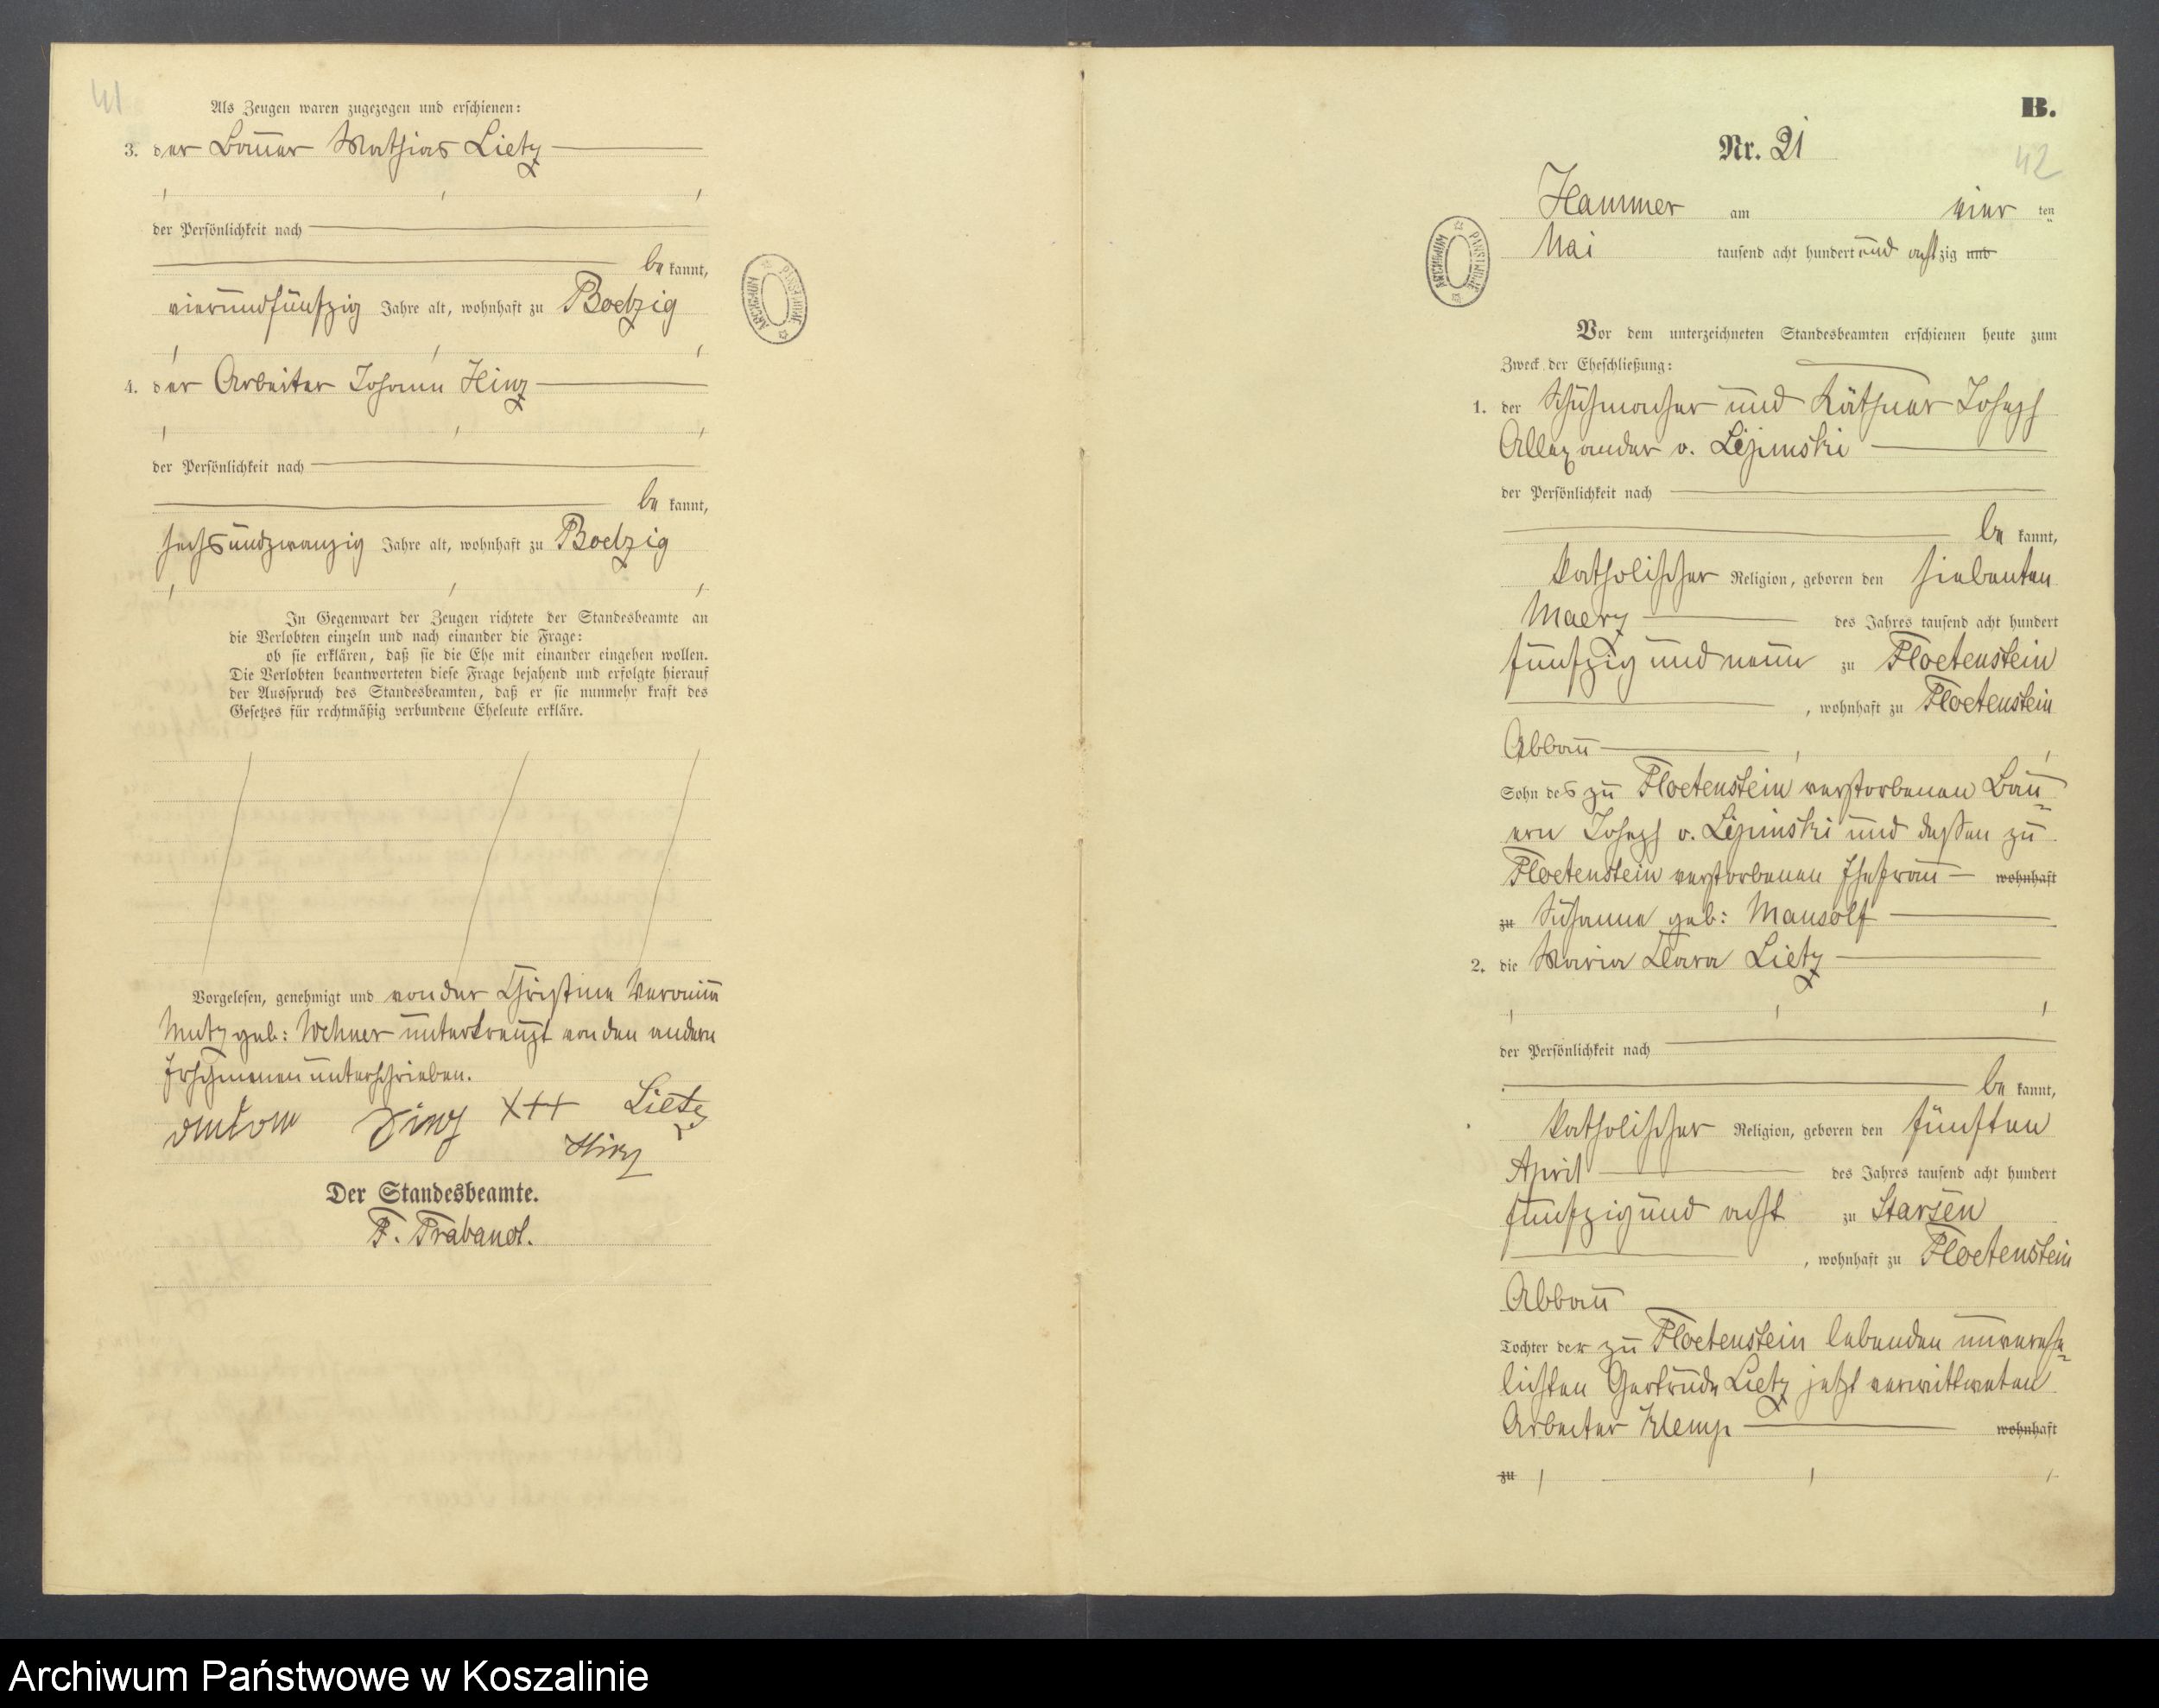 41
Als Zeugen waren zugezogen und erschienen:
3. der Bauer Mathias Lietz
der Persönlichkeit nach
be kannt,
vierundfünfzig Jahre alt, wohnhaft zu Boelzig
4. der Arbeiter Johann Hinz
der Persönlichkeit nach
be kannt,
sechsundzwanzig Jahre alt, wohnhaft zu Boelzig
In Gegenwart der Zeugen richtete der Standesbeamte an
die Verlobten einzeln und nach einander die Frage:
ob sie erklären, daß sie die Ehe mit einander eingehen wollen.
Die Verlobten beantworteten diese Frage bejahend und erfolgte hierauf
der Ausspruch des Standesbeamten, daß er sie nunmehr kraft des
Gesetzes für rechtmäßig verbundene Eheleute erkläre.
Vorgelesen, genehmigt und von der Christine
Mutz geb: Wehner unterkreuzt von den andern
Erschienenen unterschrieben.
anton +++ Lietz
Hinz
Der Standesbeamte.
F. Trabandt.
ARCHIWUM PAŃSTWOWE
B.
Nr. 21
42
Hammer am vier ten
Mai tausend acht hundert und acht zig und
ARCHIWUM PAŃSTWOWE
Vor dem unterzeichneten Standesbeamten erschienen heute zum
Zweck der Eheschließung:
1. der Schuhmacher und Käthner Joseph
Allexander v. Lipinski
der Persönlichkeit nach
be kannt,
katholischer Religion, geboren den siebenten
Maerz des Jahres tausend acht hundert
fünfzig und neun zu Floetenstein
, wohnhaft zu Floetenstein
Abbau
Sohn des zu Floetenstein verstorbenen Bau-
ern Joseph v. Lipinski und dessen zu
Floetenstein verstorbenen Ehefrau wohnhaft
zu Susanne geb: Mausolf
2. die Maria Clara Lietz
der Persönlichkeit nach
be kannt,
katholischer Religion, geboren den fünften
April des Jahres tausend acht hundert
fünfzig und acht zu Starsen
, wohnhaft zu Floetenstein
Abbau
Tochter der zu Floetenstein lebenden unverehe-
lichten Gertrude Lietz jetzt verwittweten
Arbeiter Klemp wohnhaft
zu
Archiwum Państwowe w Koszalinie